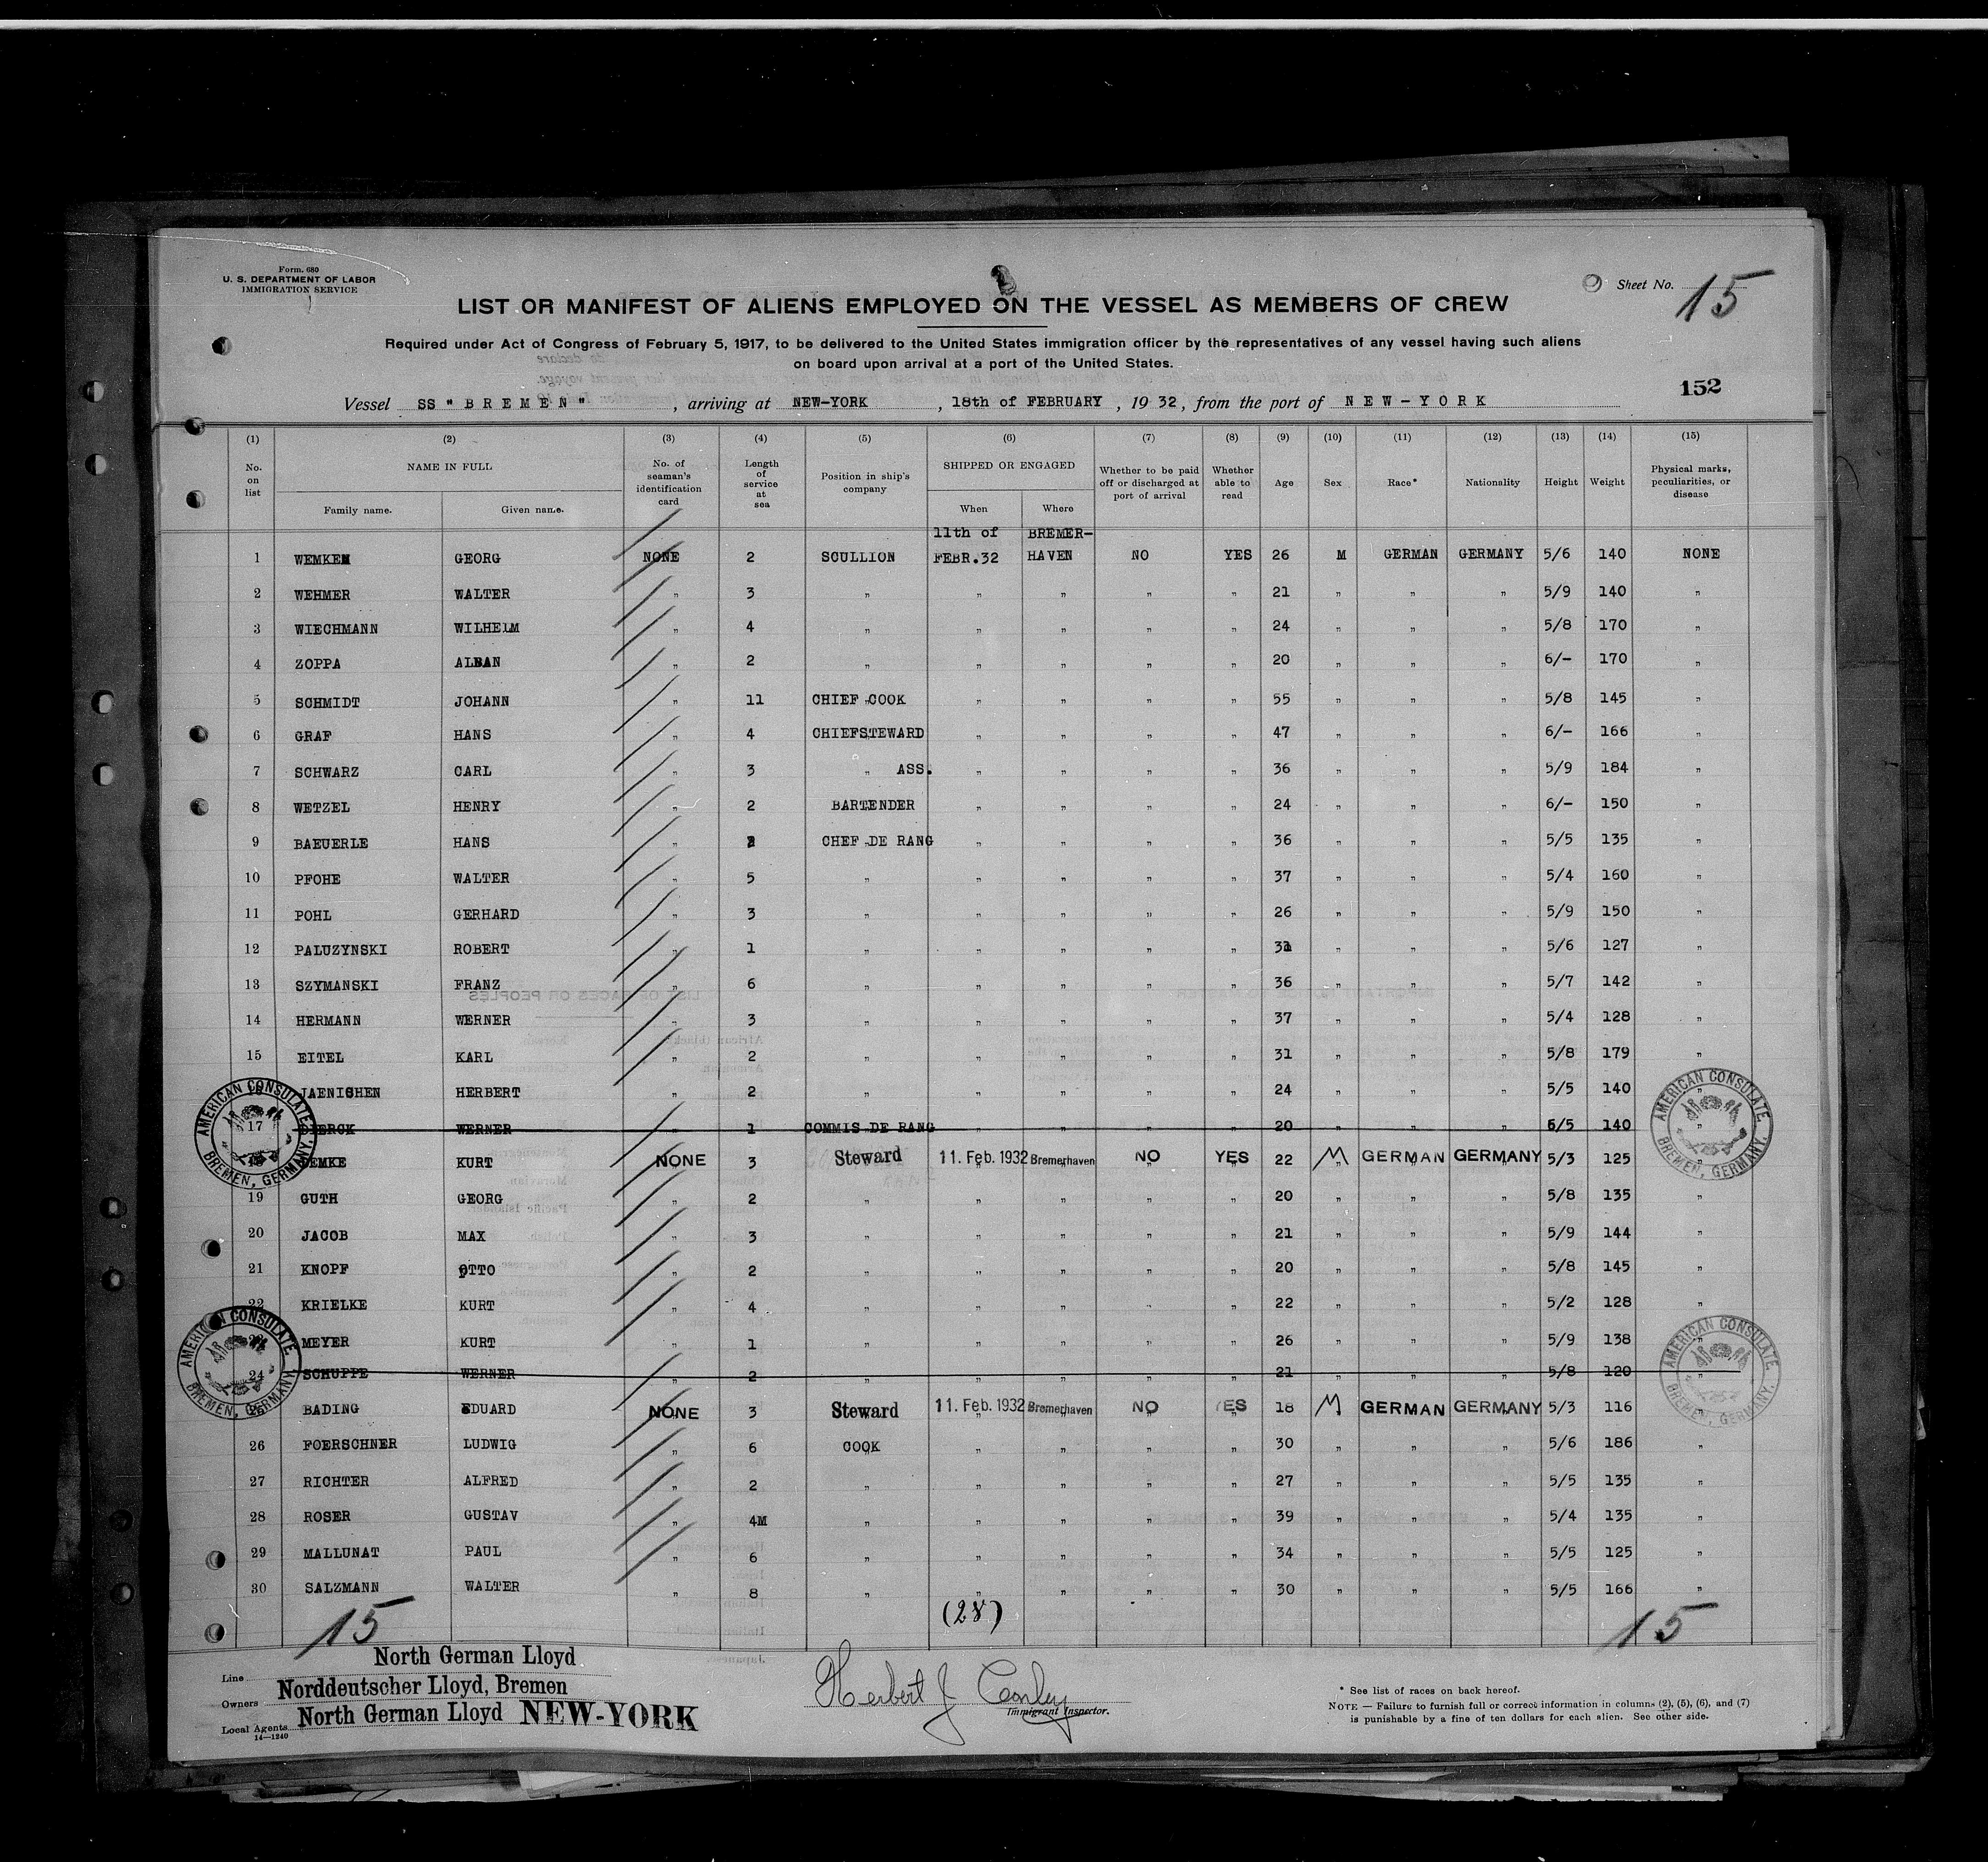 Form. 680
U. S. DEPARTMENT OF LABOR
IMMIGRATION SERVICE
Sheet No. 15
LIST OR MANIFEST OF ALIENS EMPLOYED ON THE VESSEL AS MEMBERS OF CREW
Required under Act of Congress of February 5, 1917, to be delivered to the United States immigration officer by the representatives of any vessel having such aliens
on board upon arrival at a port of the United States.
152
Vessel SS "BREMEN", arriving at NEW-YORK, 18th of FEBRUARY, 1932, from the port of NEW-YORK
(1) (2) (3) (4) (5) (6) (7) (8) (9) (10) (11) (12) (13) (14) (15)
No. on list NAME IN FULL Family name. Given name. No. of seaman's identification card Length of service at sea Position in ship's company SHIPPED OR ENGAGED When Where Whether to be paid off or discharged at port of arrival Whether able to read Age Sex Race* Nationality Height Weight Physical marks, peculiarities, or disease
1 WEMKEN GEORG NONE 2 SCULLION 11th of FEBR.32 BREMER-HAVEN NO YES 26 M GERMAN GERMANY 5/6 140 NONE
2 WEHMER WALTER " 3 " " " " " 21 " " " 5/9 140 "
3 WIECHMANN WILHELM " 4 " " " " " 24 " " " 5/8 170 "
4 ZOPPA ALBAN " 2 " " " " " 20 " " " 6/- 170 "
5 SCHMIDT JOHANN " 11 CHIEF COOK " " " " 55 " " " 5/8 145 "
6 GRAF HANS " 4 CHIEFSTEWARD " " " " 47 " " " 6/- 166 "
7 SCHWARZ CARL " 3 " ASS. " " " " 36 " " " 5/9 184 "
8 WETZEL HENRY " 2 BARTENDER " " " " 24 " " " 6/- 150 "
9 BAEUERLE HANS " 2 CHEF DE RANG " " " " 36 " " " 5/5 135 "
10 PFOHE WALTER " 5 " " " " " 37 " " " 5/4 160 "
11 POHL GERHARD " 3 " " " " " 26 " " " 5/9 150 "
12 PALUZYNSKI ROBERT " 1 " " " " " " " " 5/6 127 "
13 SZYMANSKI FRANZ " 6 " " " " " 36 " " " 5/7 142 "
14 HERMANN WERNER " 3 " " " " " 37 " " " 5/4 128 "
15 EITEL KARL " 2 " " " " " 31 " " " 5/8 179 "
16 JAENICHEN HERBERT " 2 " " " " " 24 " " " 5/5 140 "
17 WERNER " 1 COMMIS DE RANG " " " " 20 " " " 6/5 140 "
18 KURT NONE 3 Steward 11. Feb. 1932 Bremerhaven NO YES 22 M GERMAN GERMANY 5/3 125 "
19 GUTH GEORG " 2 " " " " " 20 " " " 5/8 135 "
20 JACOB MAX " 3 " " " " " 21 " " " 5/9 144 "
21 KNOPF OTTO " 2 " " " " " 20 " " " 5/8 145 "
22 KRIELKE KURT " 4 " " " " " 22 " " " 5/2 128 "
23 MEYER KURT " 1 " " " " " 26 " " " 5/9 138 "
24 SCHUPPE WERNER " 2 " " " " " 21 " " " 5/8 120 "
25 BADING EDUARD NONE 3 Steward 11. Feb. 1932 Bremerhaven NO YES 18 M GERMAN GERMANY 5/3 116 "
26 FOERSCHNER LUDWIG " 6 COOK " " " " 30 " " " 5/6 186 "
27 RICHTER ALFRED " 2 " " " " " 27 " " " 5/5 135 "
28 ROSER GUSTAV " 4M " " " " " 39 " " " 5/4 135 "
29 MALLUNAT PAUL " 6 " " " " " 34 " " " 5/5 125 "
30 SALZMANN WALTER " 8 " " " " " 30 " " " 5/5 166 "
AMERICAN CONSULATE, BREMEN, GERMANY.
AMERICAN CONSULATE, BREMEN, GERMANY.
AMERICAN CONSULATE, BREMEN, GERMANY.
AMERICAN CONSULATE, BREMEN, GERMANY.
15 (28) 15
Line North German Lloyd
Owners Norddeutscher Lloyd, Bremen
Local Agents North German Lloyd NEW-YORK
14—1240
Herbert J Conley
Immigrant Inspector.
* See list of races on back hereof.
NOTE — Failure to furnish full or correct information in columns (2), (5), (6), and (7)
is punishable by a fine of ten dollars for each alien. See other side.